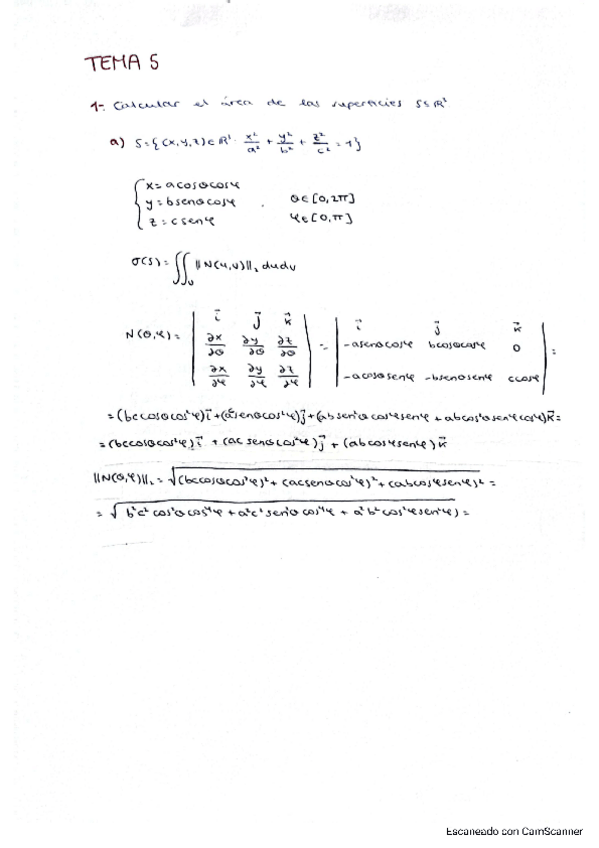 TEMA 5
1- Calcular el área de las superficies S⊆ℝ³
a) S={(x,y,z)∈ℝ³: x²/a² + y²/b² + z²/c² = 1}
x = a cosθ cosφ
y = b senθ cosφ , θ∈[0,2π]
z = c senφ φ∈[0,π]
σ(S) = ∬_U ||N(u,v)||₂ du dv
N(θ,φ) = | i⃗ j⃗ k⃗ | = | i⃗ j⃗ k⃗ | =
∂x/∂θ ∂y/∂θ ∂z/∂θ -a senθ cosφ b cosθ cosφ 0
∂x/∂φ ∂y/∂φ ∂z/∂φ -a cosθ senφ -b senθ senφ c cosφ
= (bc cosθ cos²φ) i⃗ + (ac senθ cos²φ) j⃗ + (ab sen²θ cosφ senφ + ab cos²θ senφ cosφ) k⃗ =
= (bc cosθ cos²φ) i⃗ + (ac senθ cos²φ) j⃗ + (ab cosφ senφ) k⃗
||N(θ,φ)||₂ = √(bc cosθ cos²φ)² + (ac senθ cos²φ)² + (ab cosφ senφ)² =
= √b²c² cos²θ cos⁴φ + a²c² sen²θ cos⁴φ + a²b² cos²φ sen²φ) =
Escaneado con CamScanner